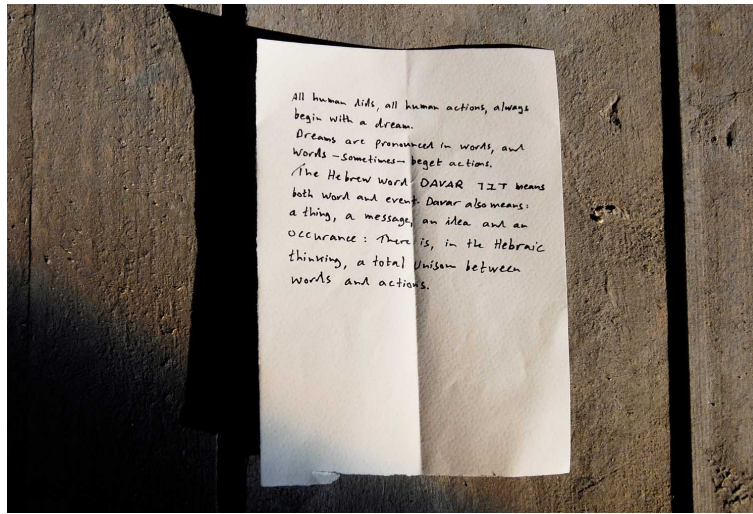 All human dids, all human actions, always
begin with a dream.
Dreams are pronounced in words, and
words – sometimes – beget actions.
The Hebrew word DAVAR דבר means
both word and event. Davar also means:
a thing, a message, an idea and an
occurance: There is, in the Hebraic
thinking, a total Unison between
words and actions.